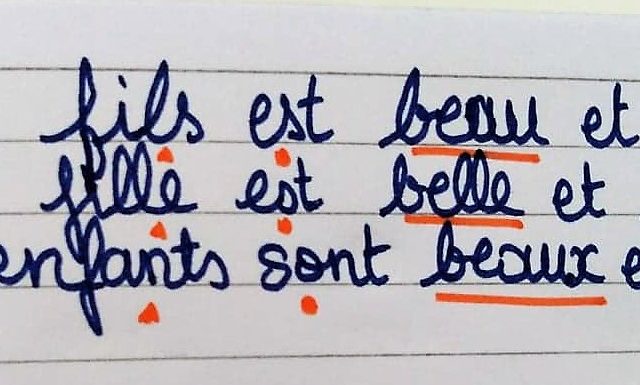 fils est beau et
fille est belle et
enfants sont beaux e